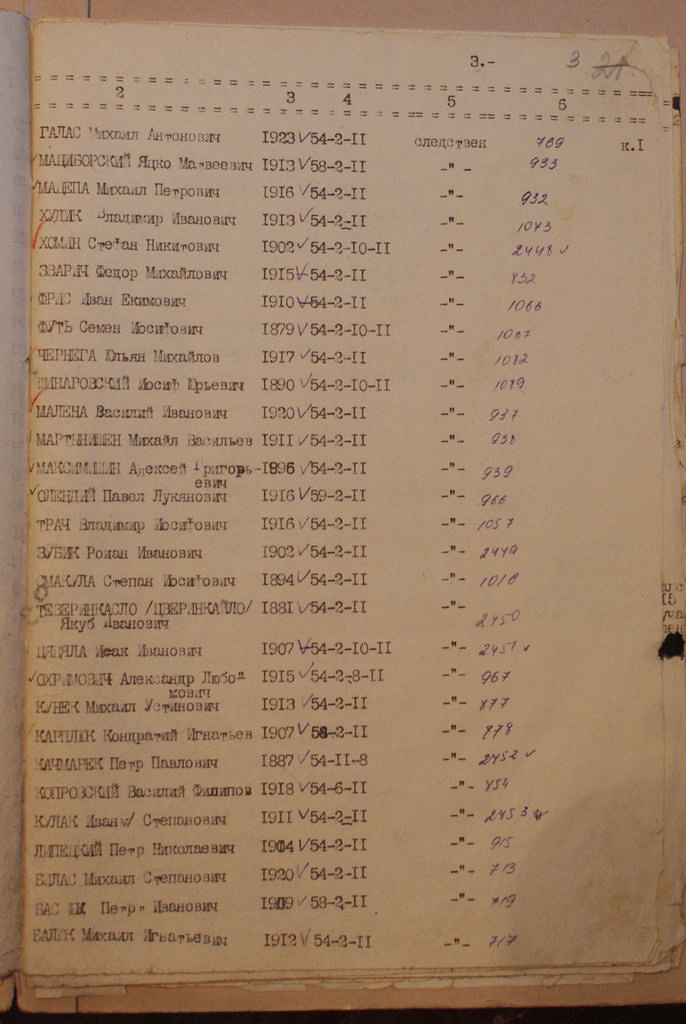 3.-
3 21
2 3 4 5 6
ГАЛАС Михаил Антонович 1923 V 54-2-II следствен 769 к.I
МАЦИБОРСКИЙ Яцко Матвеевич 1913 V 58-2-II -"- 933
МАЦЕПА Михаил Петрович 1916 V 54-2-II -"- 932
ХУДИК Владимир Иванович 1913 V 54-2-II -"- 1073
ХОМИН Стефан Никитович 1902 V 54-2-10-II -"- 2448 v
ЗВАРИЧ Федор Михайлович 1915 V 54-2-II -"- 832
ФРИС Иван Екимович 1910 V 54-2-II -"- 1066
ФУТЬ Семен Иосифович 1879 V 54-2-10-II -"- 1067
ЧЕРНЕГА Юльян Михайлов 1917 V 54-2-II -"- 1082
Иосиф Юрьевич 1890 V 54-2-10-II -"- 1089
МАЛЕНА Василий Иванович 1920 V 54-2-II -"- 937
МАРТЫНИШЕН Михайл Васильев 1911 V 54-2-II -"- 938
МАКСИМИШИН Алексей Григорь- 1896 V 54-2-II -"- 939
евич
ОЛЕНДИЙ Павел Лукянович 1916 V 59-2-II -"- 966
ТРАЧ Владимир Иосифович 1916 V 54-2-II -"- 1057
ЗУБИК Роман Иванович 1902 V 54-2-II -"- 2449
СМАКУЛА Степан Иосифович 1894 V 54-2-II -"- 1018
ТЕЗЕРИНКАСЛО /ЦВЕРИНКАЙЛО/ 1881 V 54-2-II -"-
Якуб Иванович 2450
ЦЯПЯЛА Исак Иванович 1907 V 54-2-10-II -"- 2451 v
ОХРИМОВИЧ Александр Любо 1915 V 54-2-8-II -"- 967
мович
КУНЕК Михаил Устинович 1913 V 54-2-II -"- 877
КАРПЛЮК Кондратий Игнатьев 1907 V 58-2-II -"- 878
КАЧМАРЕК Петр Павлович 1887 V 54-II-8 -"- 2452 v
КОПРОВСКИЙ Василий Филипов 1918 V 54-6-II -"- 854
КУЛАК Иван/ Степанович 1911 V 54-2-II -"- 2453 v
ЛИПЕЦКИЙ Петр Николаевич 1904 V 54-2-II -"- 915
БИЛАС Михаил Степанович 1920 V 54-2-II -"- 713
Петр Иванович 1909 V 58-2-II -"- 719
БАЛЮК Михаил Игнатьевич 1912 V 54-2-II -"- 717